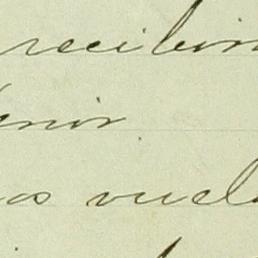 recibir
enir.
os vuel